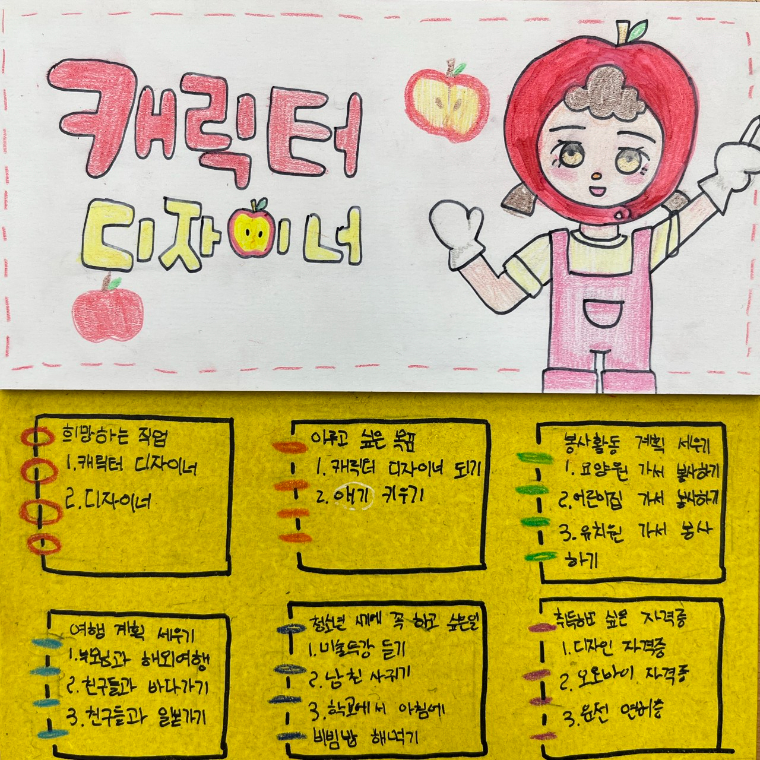 캐릭터
디자이너
희망하는 직업
1. 캐릭터 디자이너
2. 디자이너
이루고 싶은 목표
1. 캐릭터 디자이너 되기
2. 애기 키우기
봉사활동 계획 세우기
1. 요양원 가서 봉사하기
2. 어린이집 가서 봉사하기
3. 유치원 가서 봉사
하기
여행 계획 세우기
1. 부모님과 해외여행
2. 친구들과 바다가기
3. 친구들과 일본가기
청소년 시기에 꼭 하고 싶은일
1. 미술특강 듣기
2. 남친 사귀기
3. 학교에서 아침에
비빔밥 해먹기
취득하고 싶은 자격증
1. 디자인 자격증
2. 오토바이 자격증
3. 운전 면허증